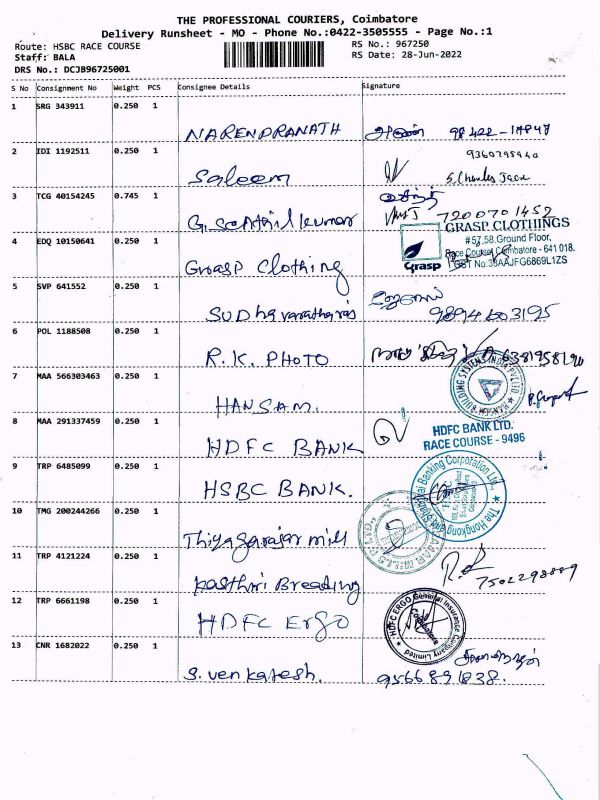 THE PROFESSIONAL COURIERS, Coimbatore
Delivery Runsheet - MO - Phone No.:0422-3505555 - Page No.:1
Route: HSBC RACE COURSE
RS No.: 967250
Staff: BALA
RS Date: 28-Jun-2022
DRS No.: DCJB96725001
S No Consignment No Weight PCS Consignee Details Signature
1 SRG 343911 0.250 1
NARENDRANATH
2 IDI 1192511 0.250 1
Saleem
S. Charles
3 TCG 40154245 0.745 1
G. Senthil kumar 7200701452
4 EDQ 10150641 0.250 1
Grasp Clothing
GRASP CLOTHINGS
#57,58.Ground Floor,
Race Course, Coimbatore - 641 018.
GST No.33AAJFG6869L1ZS
Grasp
5 SVP 641552 0.250 1
Sudhavaratharaj
6 POL 1188508 0.250 1
R.K. PHOTO
7 MAA 566303463 0.250 1
HANSAM.
8 MAA 291337459 0.250 1
HDFC BANK
HDFC BANK LTD.
RACE COURSE - 9496
9 TRP 6485099 0.250 1
HSBC BANK.
The Hongkong and Shanghai Banking Corporation Ltd.
10 TMG 200244266 0.250 1
Thiyagarajar mill
11 TRP 4121224 0.250 1
12 TRP 6661198 0.250 1
HDFC Ergo
HDFC ERGO General Insurance Company Limited
13 CNR 1682022 0.250 1
S. venkatesh. 9566891838.